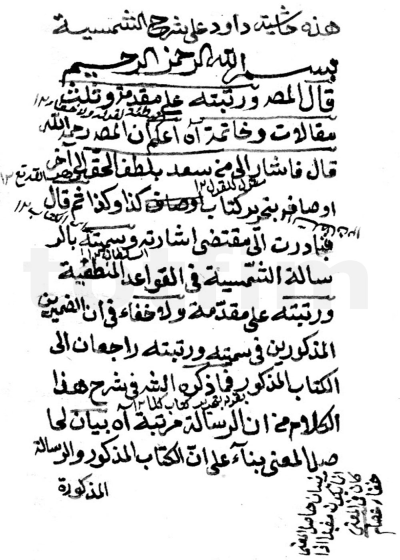 هذه حاشيته داود على شرح الشمسية
بسم الله الرحمن الرحيم
قال المصـ ورتبته على مقدمة وثلث
مقالات وخاتمة آه اعلم ان المصـ رحمه الله
قال فاشار الى من سعد بلطف الحق
اوصافه بتحرير كتاب كذا وكذا ثم قال
فبادرت الى مقتضى اشارته وسميته بالر
سالة الشمسية في القواعد المنطقية
ورتبته على مقدمة ولا خفاء في ان الضميرين
المذكورين في سميته ورتبته راجعان الى
الكتاب المذكور فما ذكره الشـ في شرح هذا
الكلام من ان الرسالة مرتبة آه بيان لحا
صل المعنى بناء على ان الكتاب المذكور والرسالة
المذكورة